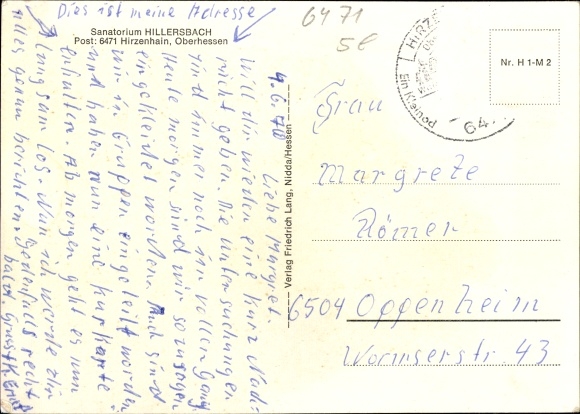 Dies ist meine Adresse
Sanatorium HILLERSBACH
Post: 6471 Hirzenhain, Oberhessen
6471
5€
4.6.70
Liebe Margret.
Will dir wieder eine kurz Nach-
richt geben. Die Untersuchungen
sind immer noch in vollen Gang
Heute morgen sind wir sozusagen
eingekleidet worden. Auch sind
wir in Gruppen eingeteilt worden
und haben nun eine Kurkarte
erhalten. Ab morgen geht es nun
langsam los. Nun ich werde dir
alles genau berichten. Jedenfalls recht
bald. Gruss
Verlag Friedrich Lang, Nidda/Hessen
HIRZE
Nr. H 1-M 2
64
Frau
Margrete
Römer
6504 Oppenheim
Wormserstr. 43